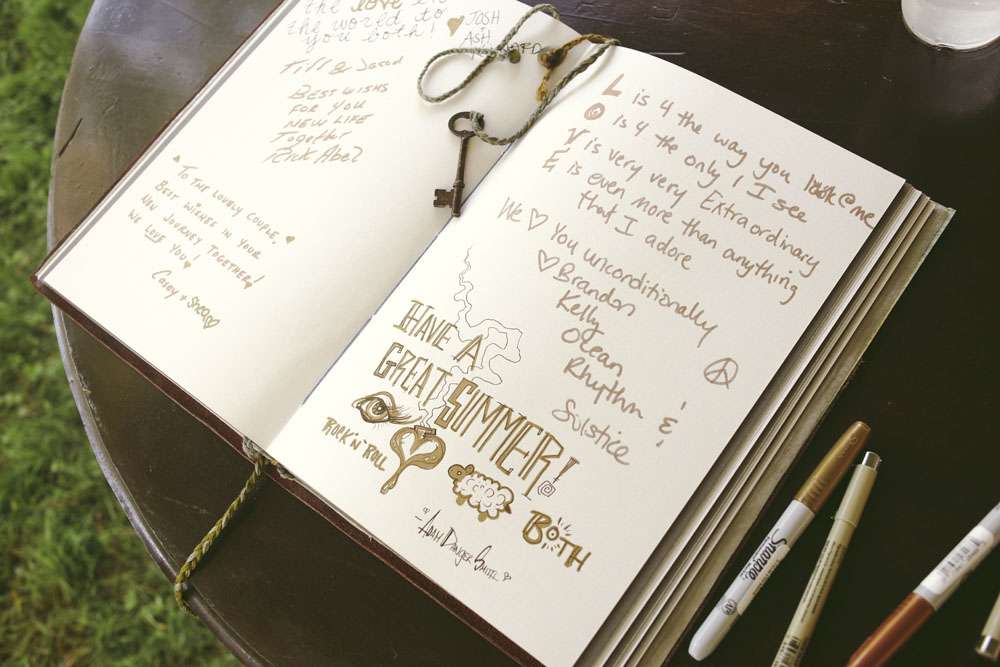 the LOVE
the world to
you both!
JOSH
ASH
&
BEST WISHS
FOR YOU
NEW LIFE
Together
Rick Abel
TO THE LOVELY COUPLE,
BEST WISHES IN YOUR
NEW JOURNEY TOGETHER!
WE LOVE YOU!
Casey +
L is 4 the way you look @ me
O is 4 the only 1 I see
V is very very Extraordinary
E is even more than anything
that I adore
We ♡ You unconditionally
♡ Brandon
Kelly
Ocean
Rhythm &
Solstice
HAVE A
GREAT SUMMER!
ROCK 'N' ROLL
BOTH
- ADAM DANGER SMITH
Sharpie